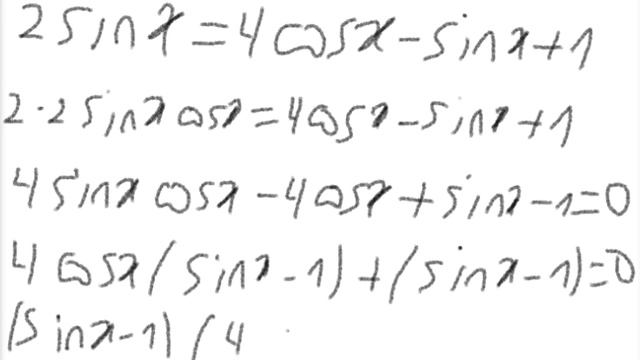 2 sin x = 4 cos x - sin x + 1
2 · 2 sin x cos x = 4 cos x - sin x + 1
4 sin x cos x - 4 cos x + sin x - 1 = 0
4 cos x (sin x - 1) + (sin x - 1) = 0
(sin x - 1) (4